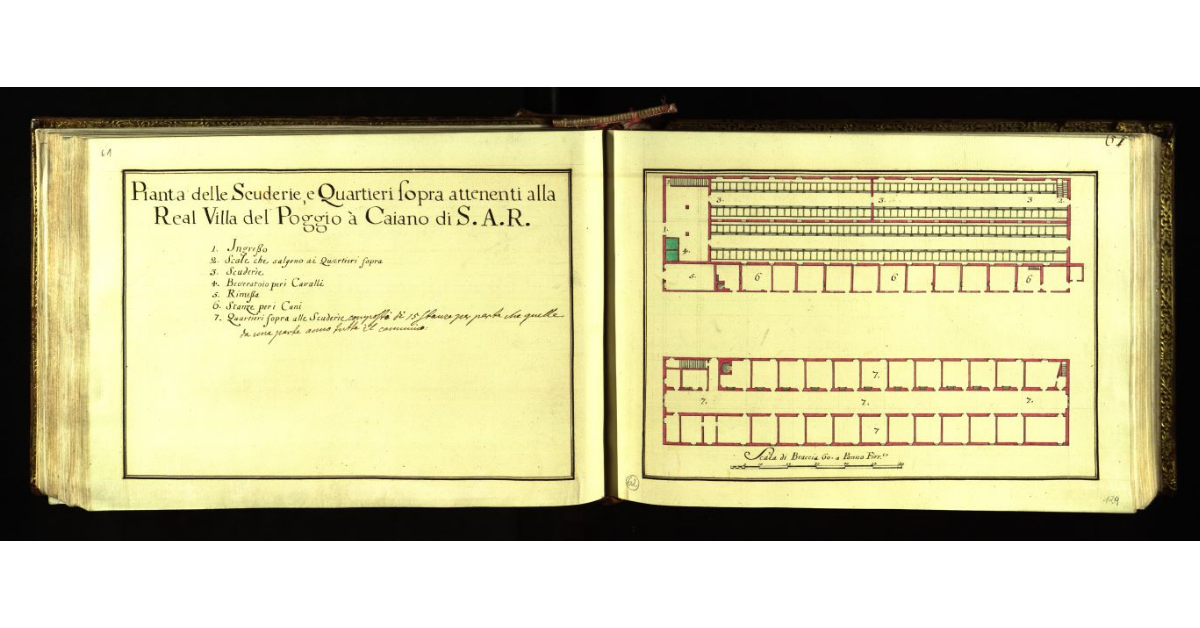 61
Pianta delle Scuderie, e Quartieri sopra attenenti alla
Real Villa del Poggio à Caiano di S. A. R.
1. Ingreßo
2. Scale che salgono ai Quartieri sopra
3. Scuderie
4. Beveratoio per i Cavalli
5. Rimeßa
6. Stanze per i Cani
7. Quartieri sopra alle Scuderie composti di 15 stanze per parte che quelle
da una parte anno tutte il cammino
2. 3. 3. 3 2.
1.
4.
5. 6 6 6
7.
7. 7. 7.
7
Scala di Braccia 60. a Panno Fior.
129